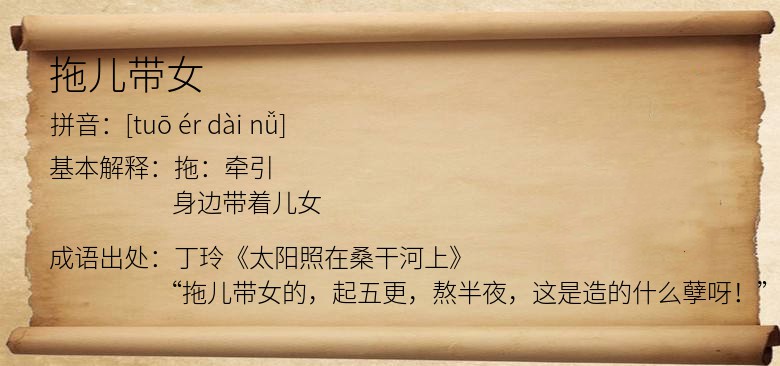 拖儿带女
拼音：[tuō ér dài nǚ]
基本解释：拖：牵引
身边带着儿女
成语出处：丁玲《太阳照在桑干河上》
“拖儿带女的，起五更，熬半夜，这是造的什么孽呀！”